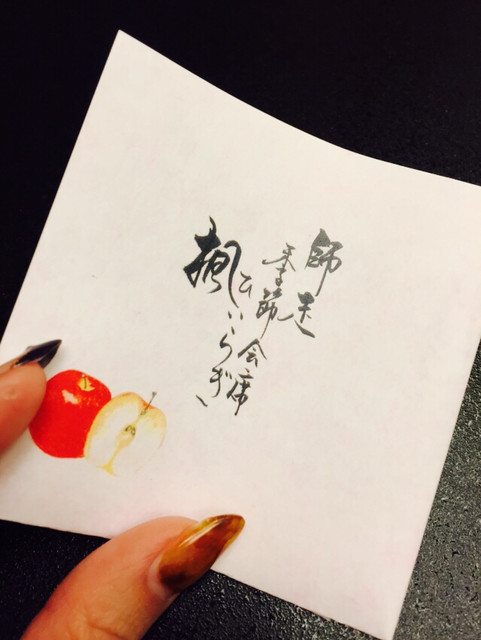 師走
季節会席
楓 ひいらぎ